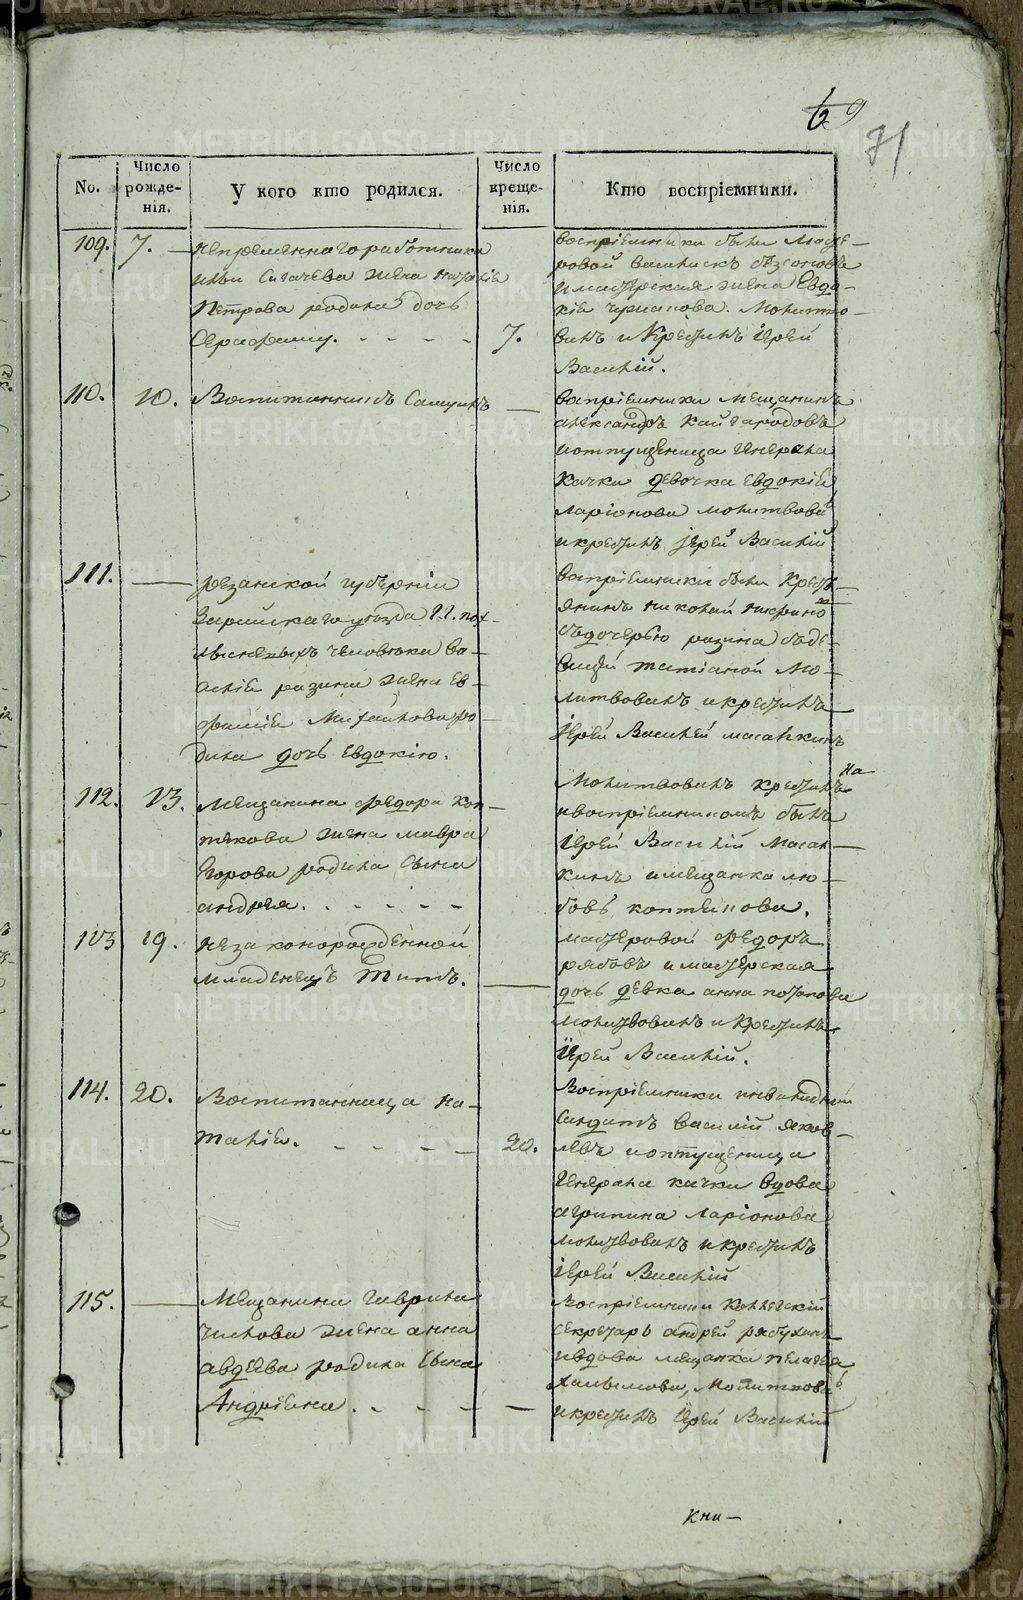 69
71
No.
Число рожде-нія.
У кого кто родился.
Число креще-нія.
Кто воспріемники.
109.
7.
непремѣннаго работника
Ильи Сигачева жена наталія
Петрова родила дочь
Серафиму.
7.
воспріемники были Масте-
ровой василискъ
и мастерская жена Евдо-
кія Молитво-
вилъ и Крестилъ Іерей
Василій.
110.
10.
Воспитанникъ Сампсонъ
воспріемники Мещанинъ
александръ Кайгародовъ
и отпущеница Генерала
Качки девочка Евдокія
ларіонова молитвовалъ
и крестилъ іерей Василій
111.
резанской губерніи
Зарайскаго уезда
человека Ва-
силія разина жена Ев-
фимія Михайлова ро-
дила дочь Евдокію.
воспріемники были Крест-
янинъ николай
съ дочерью разина съ де-
вицей татіаной Мо-
литвовилъ и крестилъ
Іерей Василей масалкинъ
112.
13.
Мещанина федора коп-
тякова жена мавра
Егорова родила Сына
андрея.
Молитвовилъ крестилъ
и воспріемникомъ былъ
Іерей Василій Масал-
кинъ и мещанка лю-
бовь коптелкова.
113
19.
незаконорожденной
младенецъ Титъ.
мастеровой федоръ
рябовъ и мастерская
дочь девка анна потапова
молитвовалъ и крестилъ
Іерей Василій.
114.
20.
Воспитанница на-
талія.
20.
Воспріемники инвалидный
Солдатъ василій яков-
левъ и отпущеница
Генерала качки вдова
агрипина ларіонова
молитвовалъ и крестилъ
іерей Василій
115.
Мещанина гаврила
жена анна
авдеева родила Сына
Андріяна.
Воспріемники Коллегскій
секретарь андрей рябухинъ
и вдова мещанка пелагея
Молитвовалъ
и крестилъ Іерей Василій
Кни-
METRIKI.GASO-URAL.RU